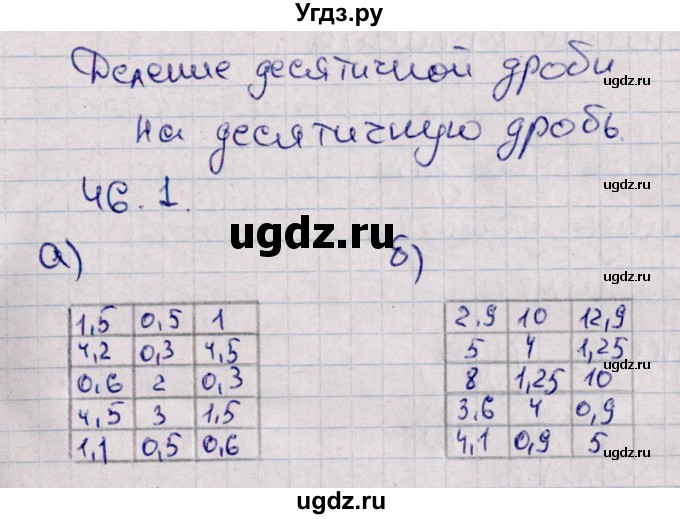 Угдз.ру
Деление десятичной дроби
на десятичную дробь.
46.1.
а) б)
1,5 0,5 1
4,2 0,3 4,5
0,6 2 0,3
4,5 3 1,5
1,1 0,5 0,6
2,9 10 12,9
5 4 1,25
8 1,25 10
3,6 4 0,9
4,1 0,9 5
ugdz.ru
ugdz.ru
ugdz.ru
ugdz.ru
ugdz.ru
ugdz.ru
ugdz.ru